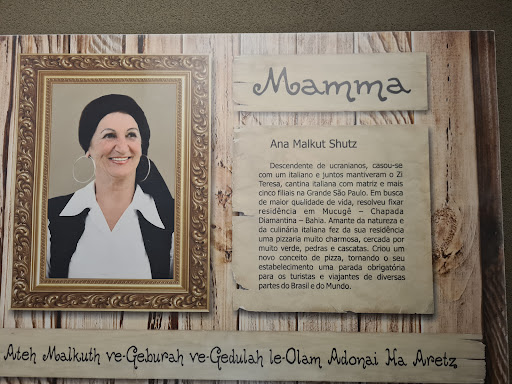 Mamma
Ana Malkut Shutz
Descendente de ucranianos, casou-se
com um italiano e juntos mantiveram o Zi
Teresa, cantina italiana com matriz e mais
cinco filiais na Grande São Paulo. Em busca
de maior qualidade de vida, resolveu fixar
residência em Mucugê – Chapada
Diamantina – Bahia. Amante da natureza e
da culinária italiana fez da sua residência
uma pizzaria muito charmosa, cercada por
muito verde, pedras e cascatas. Criou um
novo conceito de pizza, tornando o seu
estabelecimento uma parada obrigatória
para os turistas e viajantes de diversas
partes do Brasil e do Mundo.
Ateh Malkuth ve-Geburah ve-Gedulah le-Olam Adonai Ha Aretz